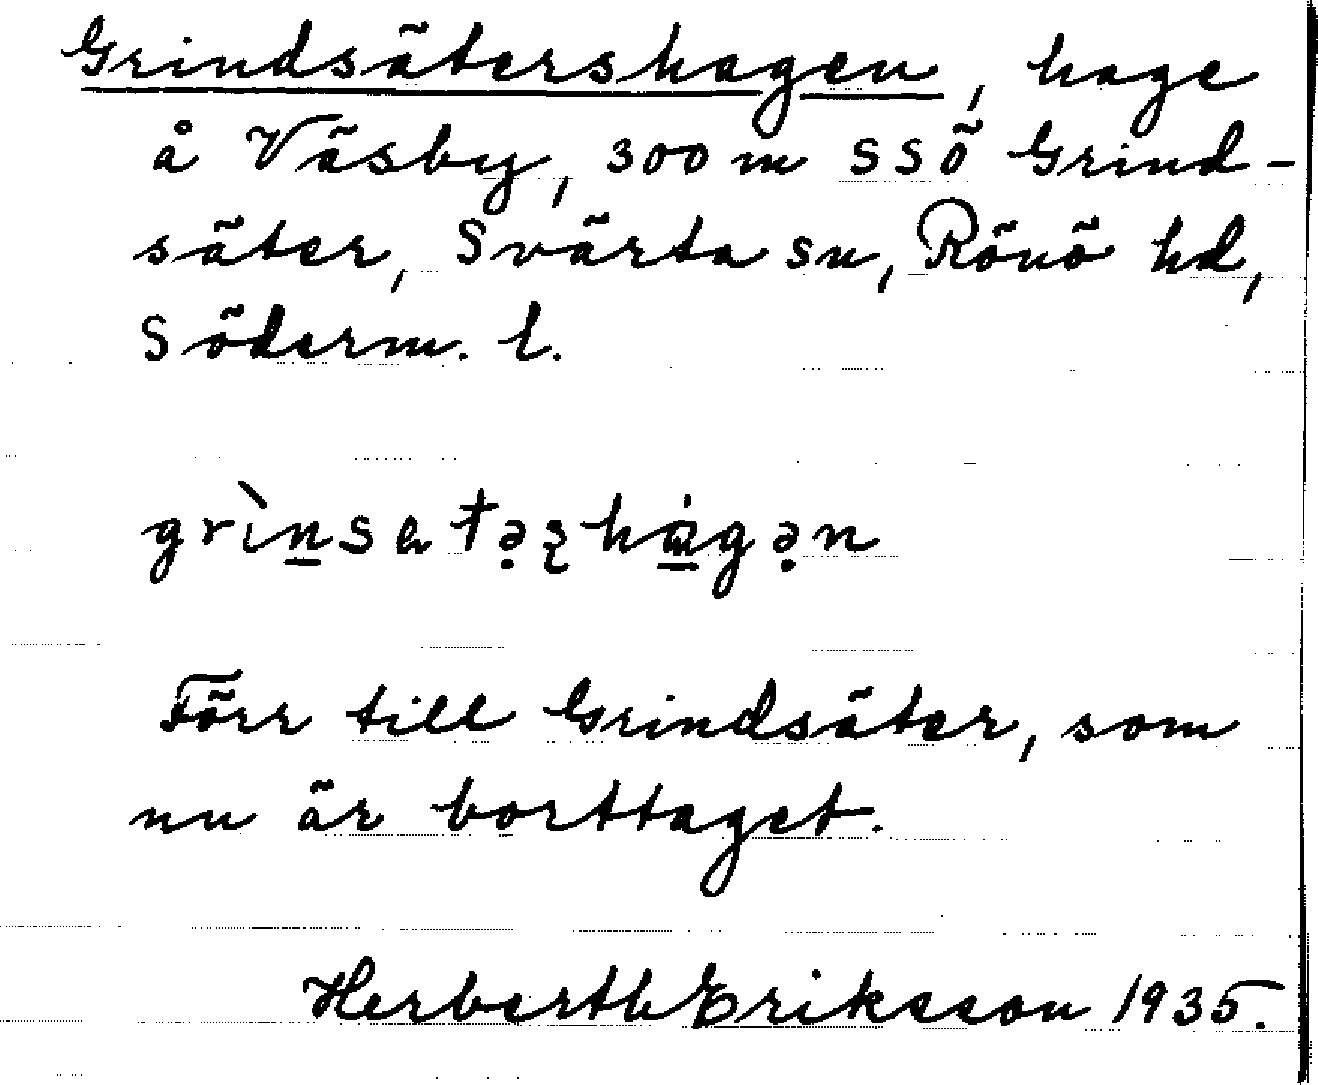 Grindsätershagen, hage
å Väsby, 300 m SSÖ Grind-
säter, Svärta sn, Rönö hd,
Söderm. l.
grìn̲satə̣ʂhá̲gə̣n
Förr till Grindsäter, som
nu är borttaget.
Herberth Eriksson 1935.